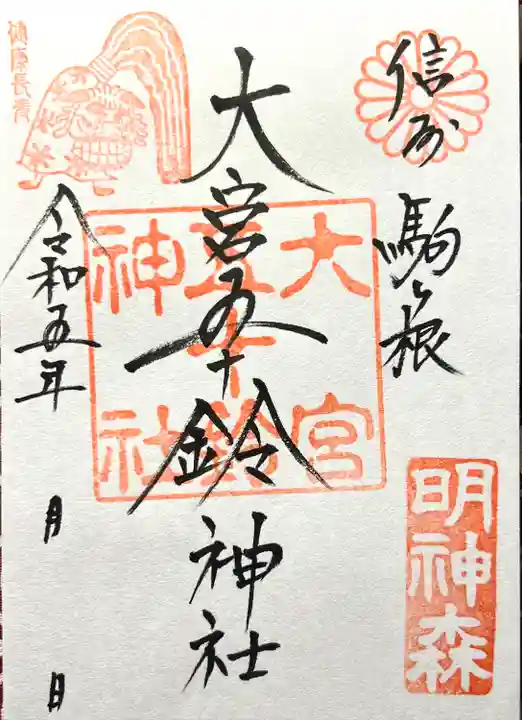 信州 駒ヶ根
大宮五十鈴神社
令和五年 月 日
大宮
五十鈴
神社
明神森
健康長寿